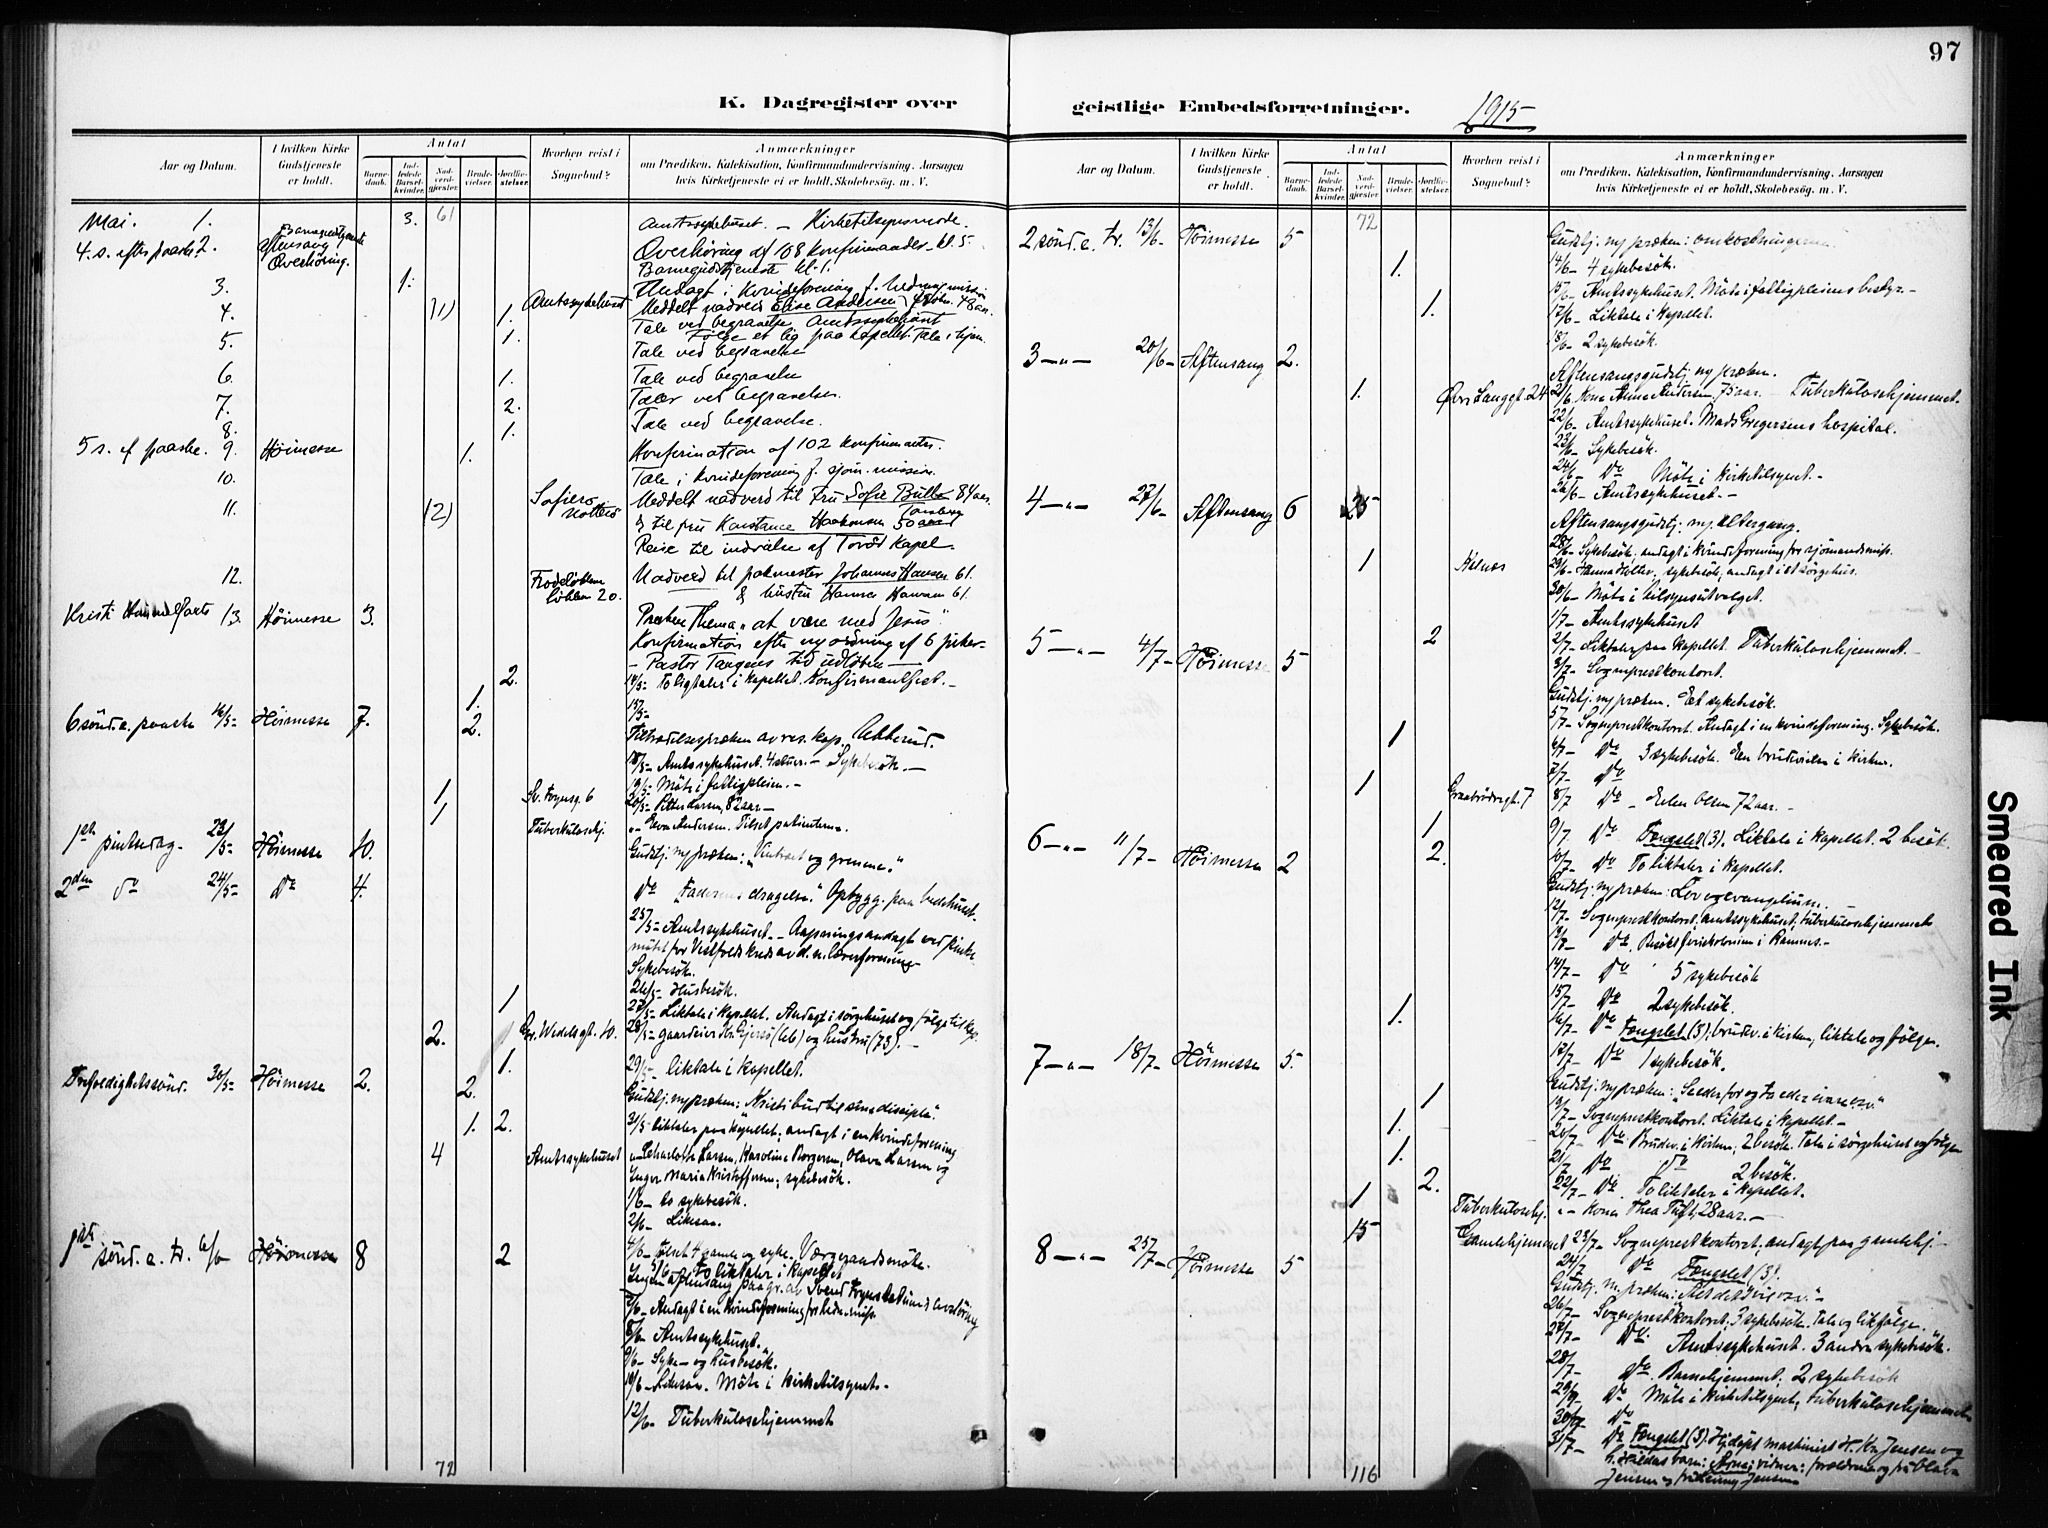 97
K. Dagregister over
geistlige Embedsforretninger. 1915
Aar og Datum.
I hvilken Kirke Gudstjeneste er holdt.
Antal
Barnedaab.
Indledede Barselkvinder.
Nadverdgjester.
Brudevielser.
Jordfæstelser.
Hvorhen reist i Sognebud?
Anmærkninger
om Prædiken, Katekisation, Konfirmandundervisning. Aarsagen
hvis Kirketjeneste ei er holdt, Skolebesøg. m. V.
Mai. 1. 3. 61 Amtssykehuset. – Kirketilsynsmøde.
4. s. efter paaske 2. Barnegudstjeneste Aftensang Overhöring. Overhöring af 108 konfirmander kl. 5.
Barnegudstjeneste kl. 1.
3. 1. Andagt i Kvindeforening f. hedningemission
4. (1) 1. Amtssykehuset Meddelt nadverd Andersen 48 aar.
Tale ved begravelse Amtssykehuset
5. 1. Følge et lig paa kapellet. Tale i hjem.
Tale ved begravelse
6. 1. Tale ved begravelse
7. 2. Taler ved begravelser.
8. 1. Tale ved begravelse.
5 s. ef paaske. 9. Høimesse 1. Konfirmation af 102 konfirmanter.
10. Tale i Kvindeforening f. sjøm. mission.
11. (2) Meddelt nadverd til Fru Sofie Bull 84 aar.
& til fru Konstance Haakonsen 50 aar
Reise til indvielse af Torød Kapel.
12. 20. Nadverd til pakmester Johannes Hansen 61.
& hustru Hansen 61.
Kristi Himmelfarts 13. Høimesse 3. Præken Thema "at være med Jesus"
Konfirmation efter ny ordning af 6 piker
– Pastor Tangens tid udløben –
2. 14/5– To ligtaler i kapellet. Konfirmantfest. –
1. 15/5–
6 sönd. e. paaske 16/5– Höimesse 7. 2. Tiltrædelsespræken av res. kap. Abberud.
18/5– Amtssykehuset. 4 stuer. – Sykebesök. –
19/5– Möte i fattigpleien. –
1 Sv. Foynsg. 6 20/5– Petter Larsen, 82 aar –
1 Tuberkulosehj. "– Andersen. Tilset patienterne.
1ste pintsedag. 23/5– Höimesse 10. Gudstj. m/ præken: "Vintræet og grenene."
2den do 24/5– Do 4. Do Faderens dragelse." Opbygg. paa bedehuset.
25/5– Amtssykehuset. – Aapningsandagt ved pinse-
mötet for Vestfold kreds av d. n. lærerforening –
Sykebesök.
26/5– Husbesök.
1 27/5– Liktale i kapellet. Andagt i sörgehuset og fölge til kap.
2. Gr. Wedelsgt. 10. 28/5– gaardeier (66) og hustru (73). –
1. 29/5– liktale i kapellet.
Trefoldighetssönd. 30/5– Höimesse 2. 2. Gudstj. m/ præken: "Kristi bud til sine disciple".
1. 2. 31/5 liktaler paa kapellet; andagt i en kvindeforening
4 Amtssykehuset "– Charlotte Larsen, Karoline Borgersen, Olava Larsen og
Inger Maria Kristoffersen; sykebesök.
1/6– to sykebesök.
2/6– Likesaa.
1ste sönd. e. tr. 6/6 Höimesse 8 2 4/6– tilset 4 gamle og syke. Værgeraadsmöte.
5/6 To liktaler i kapellet
Ingen aftensang paagr. av Svend Foyns
7/6– Andagt i en kvindeforening for hedn. miss.
8/6– Amtssykehuset.
9/6– Syke– og husbesök.
10/6– Möte i kirketilsynet. –
12/6– Tuberkulosehjemmet
72
Aar og Datum.
I hvilken Kirke Gudstjeneste er holdt.
Antal
Barnedaab.
Indledede Barselkvinder.
Nadverdgjester.
Brudevielser.
Jordfæstelser.
Hvorhen reist i Sognebud?
Anmærkninger
om Prædiken, Katekisation, Konfirmandundervisning. Aarsagen
hvis Kirketjeneste ei er holdt, Skolebesøg. m. V.
72
2 sönd. e. tr. 13/6– Höimesse 5 Gudstj. m/ præken: omkostningerne
1. 14/6– 4 sykebesök.
15/6– Amtssykehuset. Möte i fattigpleiens besty. –
1. 17/6– Liktale i kapellet.
18/6– 2 sykebesök.
3 –"– 20/6– Aftensang 2. Aftensangsgudstj. m/ præken.
1. Övre Langgt. 24 21/6 Kona Andersen, 75 aar. – Tuberkulosehjemmet.
22/6– Amtssykehuset. Mads Gregersens hospital.
23/6– Sykebesök.
24/6– Do Möte i kirketilsynet. –
26/6– Amtssykehuset. –
4 –"– 27/6– Aftensang 6 25 Aftensangsgudstj. m/ altergang.
28/6– Sykebesök. andagt i kvindeforening for sjömandsmis.
1 29/6– sykebesök, andagt i et sörgehus.
30/6– Möte i tilsynsutvalget.
1/7– Amtssykehuset
2 2/7– Liktaler paa kapellet. Tuberkulosehjemmet –
5 –"– 4/7– Höimesse 5 3/7– Sogneprestkontoret.
Gudstj. m/ præken. Et sykebesök.
5/7– Sogneprestkontoret. Andagt i en kvindeforening. Sykebesök.
1 6/7– Do 3 sykebesök. En brudevielse i kirken.
7/7– Do
1 Graabrödregt. 7 8/7 Do – Elen Olsen 72 aar. –
1 9/7 Do Fængslet (3). Liktale i kapellet. 2 besök.
6 –"– 11/7– Höimesse 2 2. 10/7– Do To liktaler i kapellet.
Gudstj. m/ præken: Lov og evangelium. –
12/7– Sogneprestkontoret, amtssykehuset, tuberkulosehjemmet
13/7– Do. Besök feriekolonien i Ramnes. –
14/7– Do 5 sykebesök
15/7– Do 2 sykebesök.
1. 16/7– Do Fængslet (3), brudev. i kirken, liktale og fölge.
17/7– Do 1 sykebesök.
7 –"– 18/7– Höimesse 5. Gudstj. m/ præken:
1 19/7– Sogneprestkontoret. Liktale i kapellet. –
1. 20/7– Do Brudev. i kirken, 2 besök. Tale i sörgehuset og fölge
1. 21/7 Do Do 2 besök.
2. 22/7– Do. To liktaler i kapellet.
1 Tuberkulosehj. "– Kona Thea Tuft, 28 aar. –
15 Gamlehjemmet 23/7– Sogneprestkontoret; andagt paa gamlehj. –
8 –"– 25/7– Höimesse 5 24/7– Do Fængslet (3).
Gudstj. m. præken:
26/7– Sogneprestkontoret; 3 sykebesök. Tale og likfölge.
27/7– Do. Amtssykehuset. 3 andre sykebesök.
28/7– Do. Barnehjemmet. 2 sykebesök
29/7– Do Möte i kirketilsynet; tuberkulosehjemmet
30/7– Do
31/7– Do Fængslet (3). Hj.döpt maskinist H. Jensen og
h. Hildas barn: Arne; vidner: forældrene og fr. Olava
Jensen og fr. Jensen
116
Smeared Ink